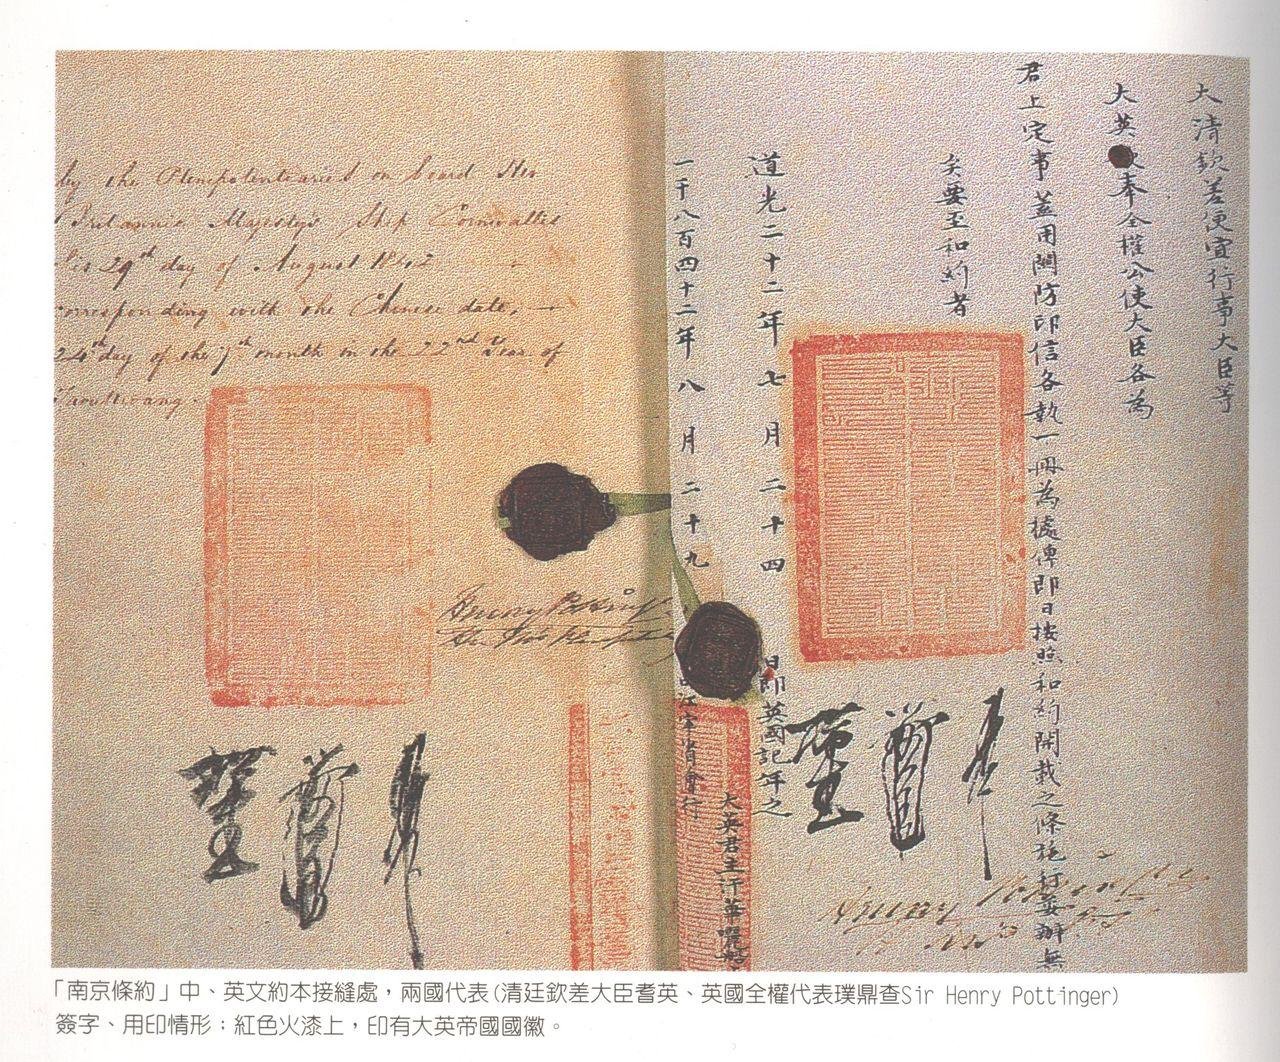 by the Plenipotentiaries on board Her
Britannic Majesty's Ship Cornwallis
this 29th day of August 1842
corresponding with the Chinese date,
24th day of the 7th month in the 22nd Year of
Taoukwang
大清欽差便宜行事大臣等
大英欽奉全權公使大臣各為
君上定事蓋用關防印信各執一冊為據俾即日按照和約開載之條施行妥辦無
矣要至和約者
道光二十二年七月二十四日即英國記年之
一千八百四十二年八月二十九日由江寧省會行
大英君主汗華囇船
「南京條約」中、英文約本接縫處，兩國代表(清廷欽差大臣耆英、英國全權代表璞鼎查Sir Henry Pottinger)
簽字、用印情形：紅色火漆上，印有大英帝國國徽。